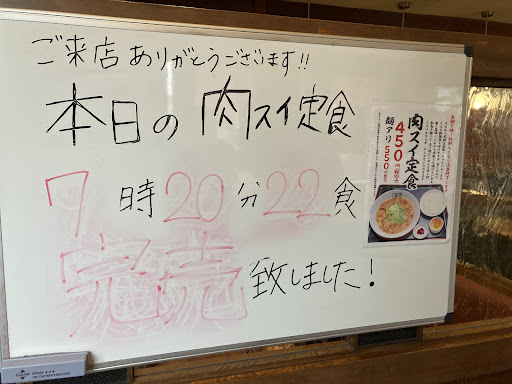 ご来店ありがとうございます!!
本日の 肉スイ定食
7時20分22食
完売致しました!
肉スイ定食
450円
麺アリ 550円